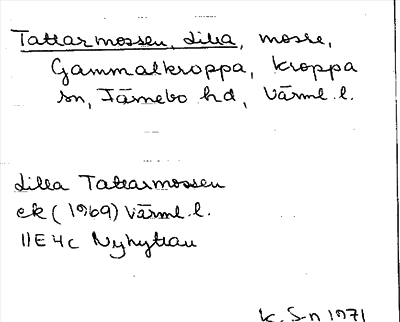 Tattarmossen, Lilla, mosse,
Gammalkroppa, Kroppa
sn, Färnebo hd, Värml. l.
Lilla Tattarmossen
ek (1969) Värml. l.
11E 4c Nyhyttan
K. S-n 1971